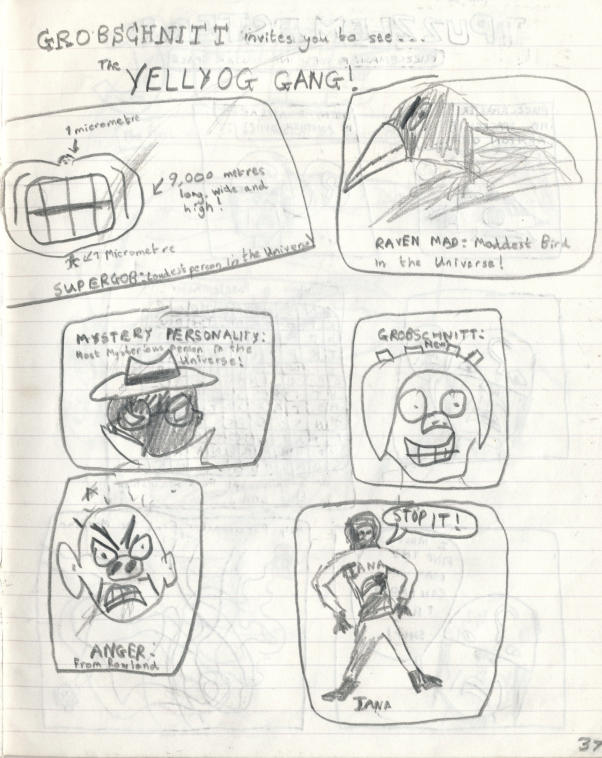 GROBSCHNITT invites you to see...
The YELLYOG GANG!
1 micrometre
9,000 metres
long, wide and
high!
1 Micrometre
SUPERGOB: Loudest person in the Universe!
RAVEN MAD: Maddest Bird
in the Universe!
MYSTERY PERSONALITY:
Most Mysterious person in the
Universe!
GROBSCHNITT:
New!
ANGER:
From Rowland
STOP IT!
JANA
JANA
37